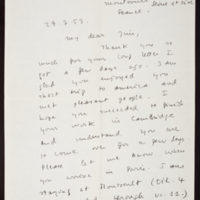 29.7.53.
My dear Jim,
Thank you so
much for your long letter I
got a few days ago. I am
glad you enjoyed your
short trip to America and
met pleasant people. I
hope you succeeded to finish
your work in Cambridge
and understand you are
to come over for a few days
Please let me know when
you arrive in Paris. I am
staying at